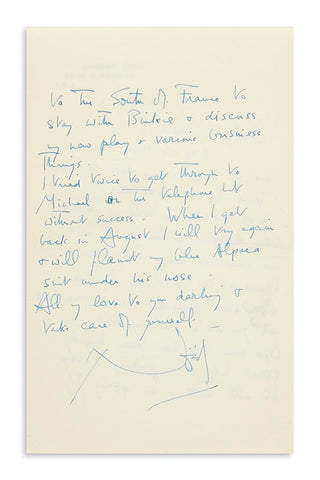 to the South of France to
stay with Binkie & discuss
my new play & various business
things.
I tried twice to get through to
Michael on the telephone but
without success. When I get
back in August I will try again
& will flaunt my blue Alpaca
suit under his nose.
All my love to you darling &
take care of yourself. –